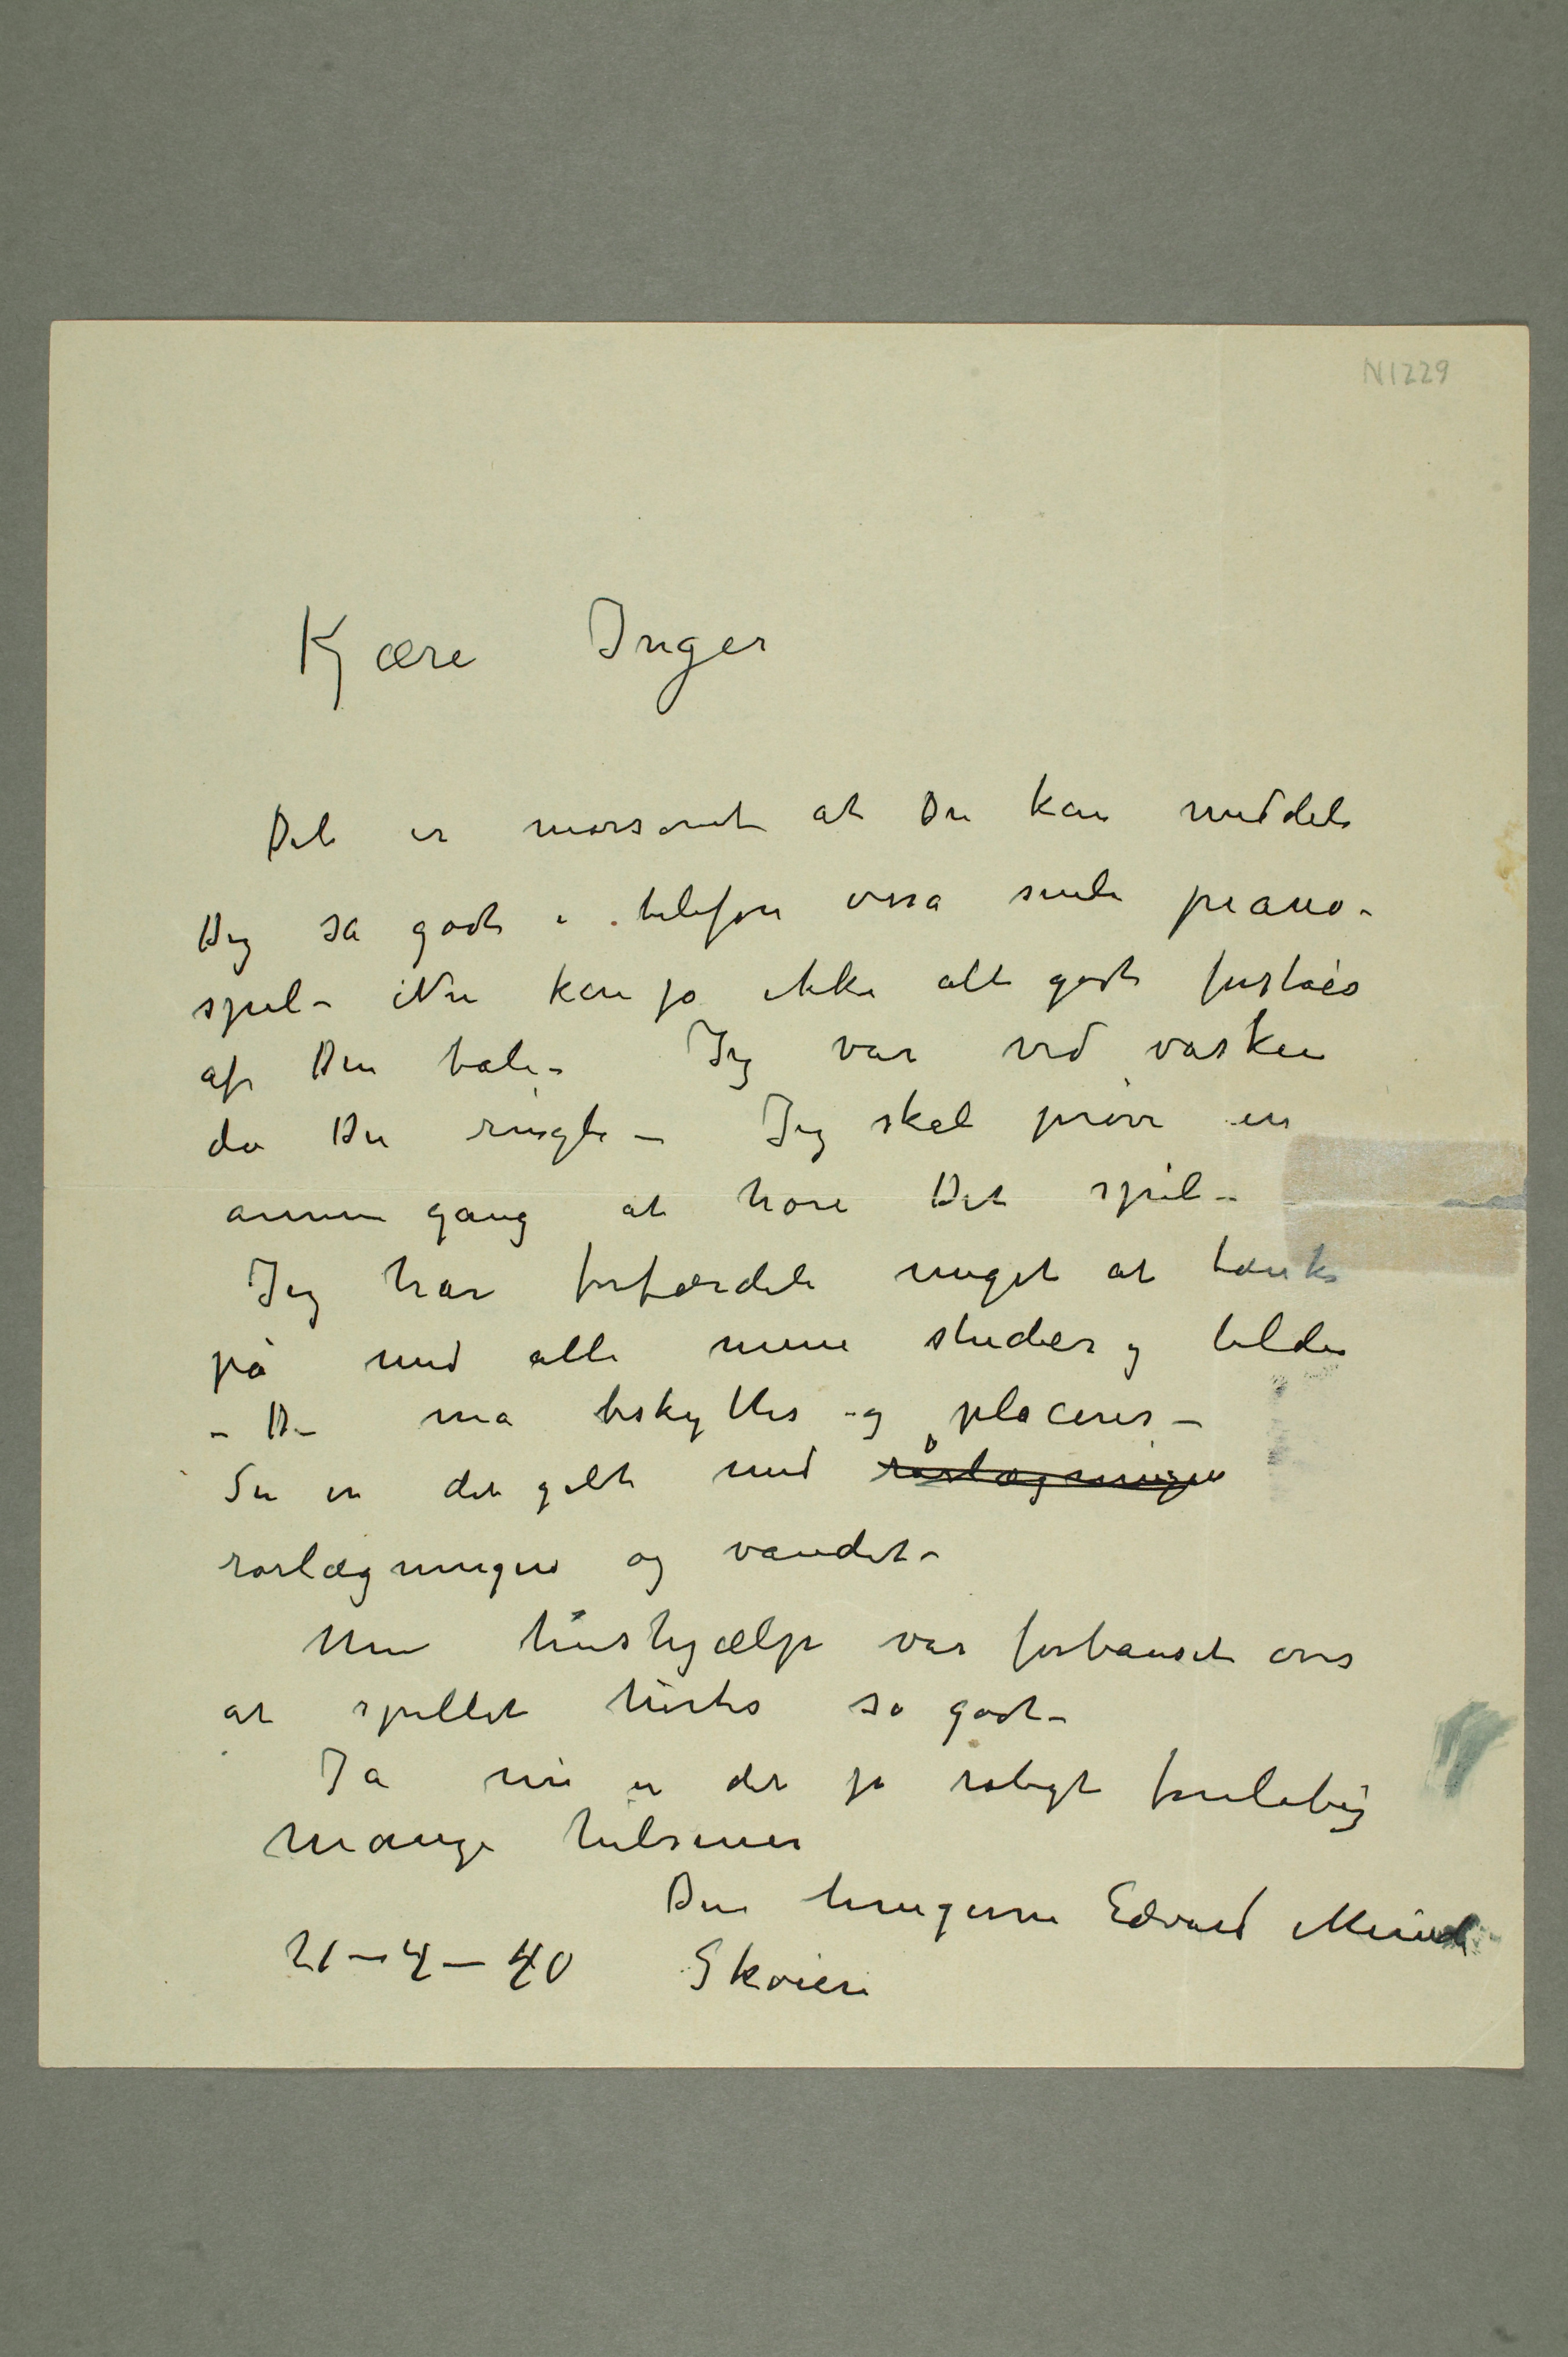 N1229
Kjære Inger
Det er morsomt at Du kan meddele
Dig så godt i telefon osså sende piano-
spil – Nu kan jo ikke alt godt forståes
af Din tale – Jeg var ved vasken
da Du ringte – Jeg skal prøve en
annen gang at høre Dit spil –
Jeg har forfærdeli meget at tænke
på med alle mine studier og bilder
– De må beskyttes og placeres –
Så er det galt med rørlægningen
rørlægningen og vandet –
Min hushjælp var forbauset over
at spillet hørtes så godt –
Ja nu er det jo roligt foreløbig
Mange hilsener
Din hengivne Edvard Munch
21–4–40 Skøien